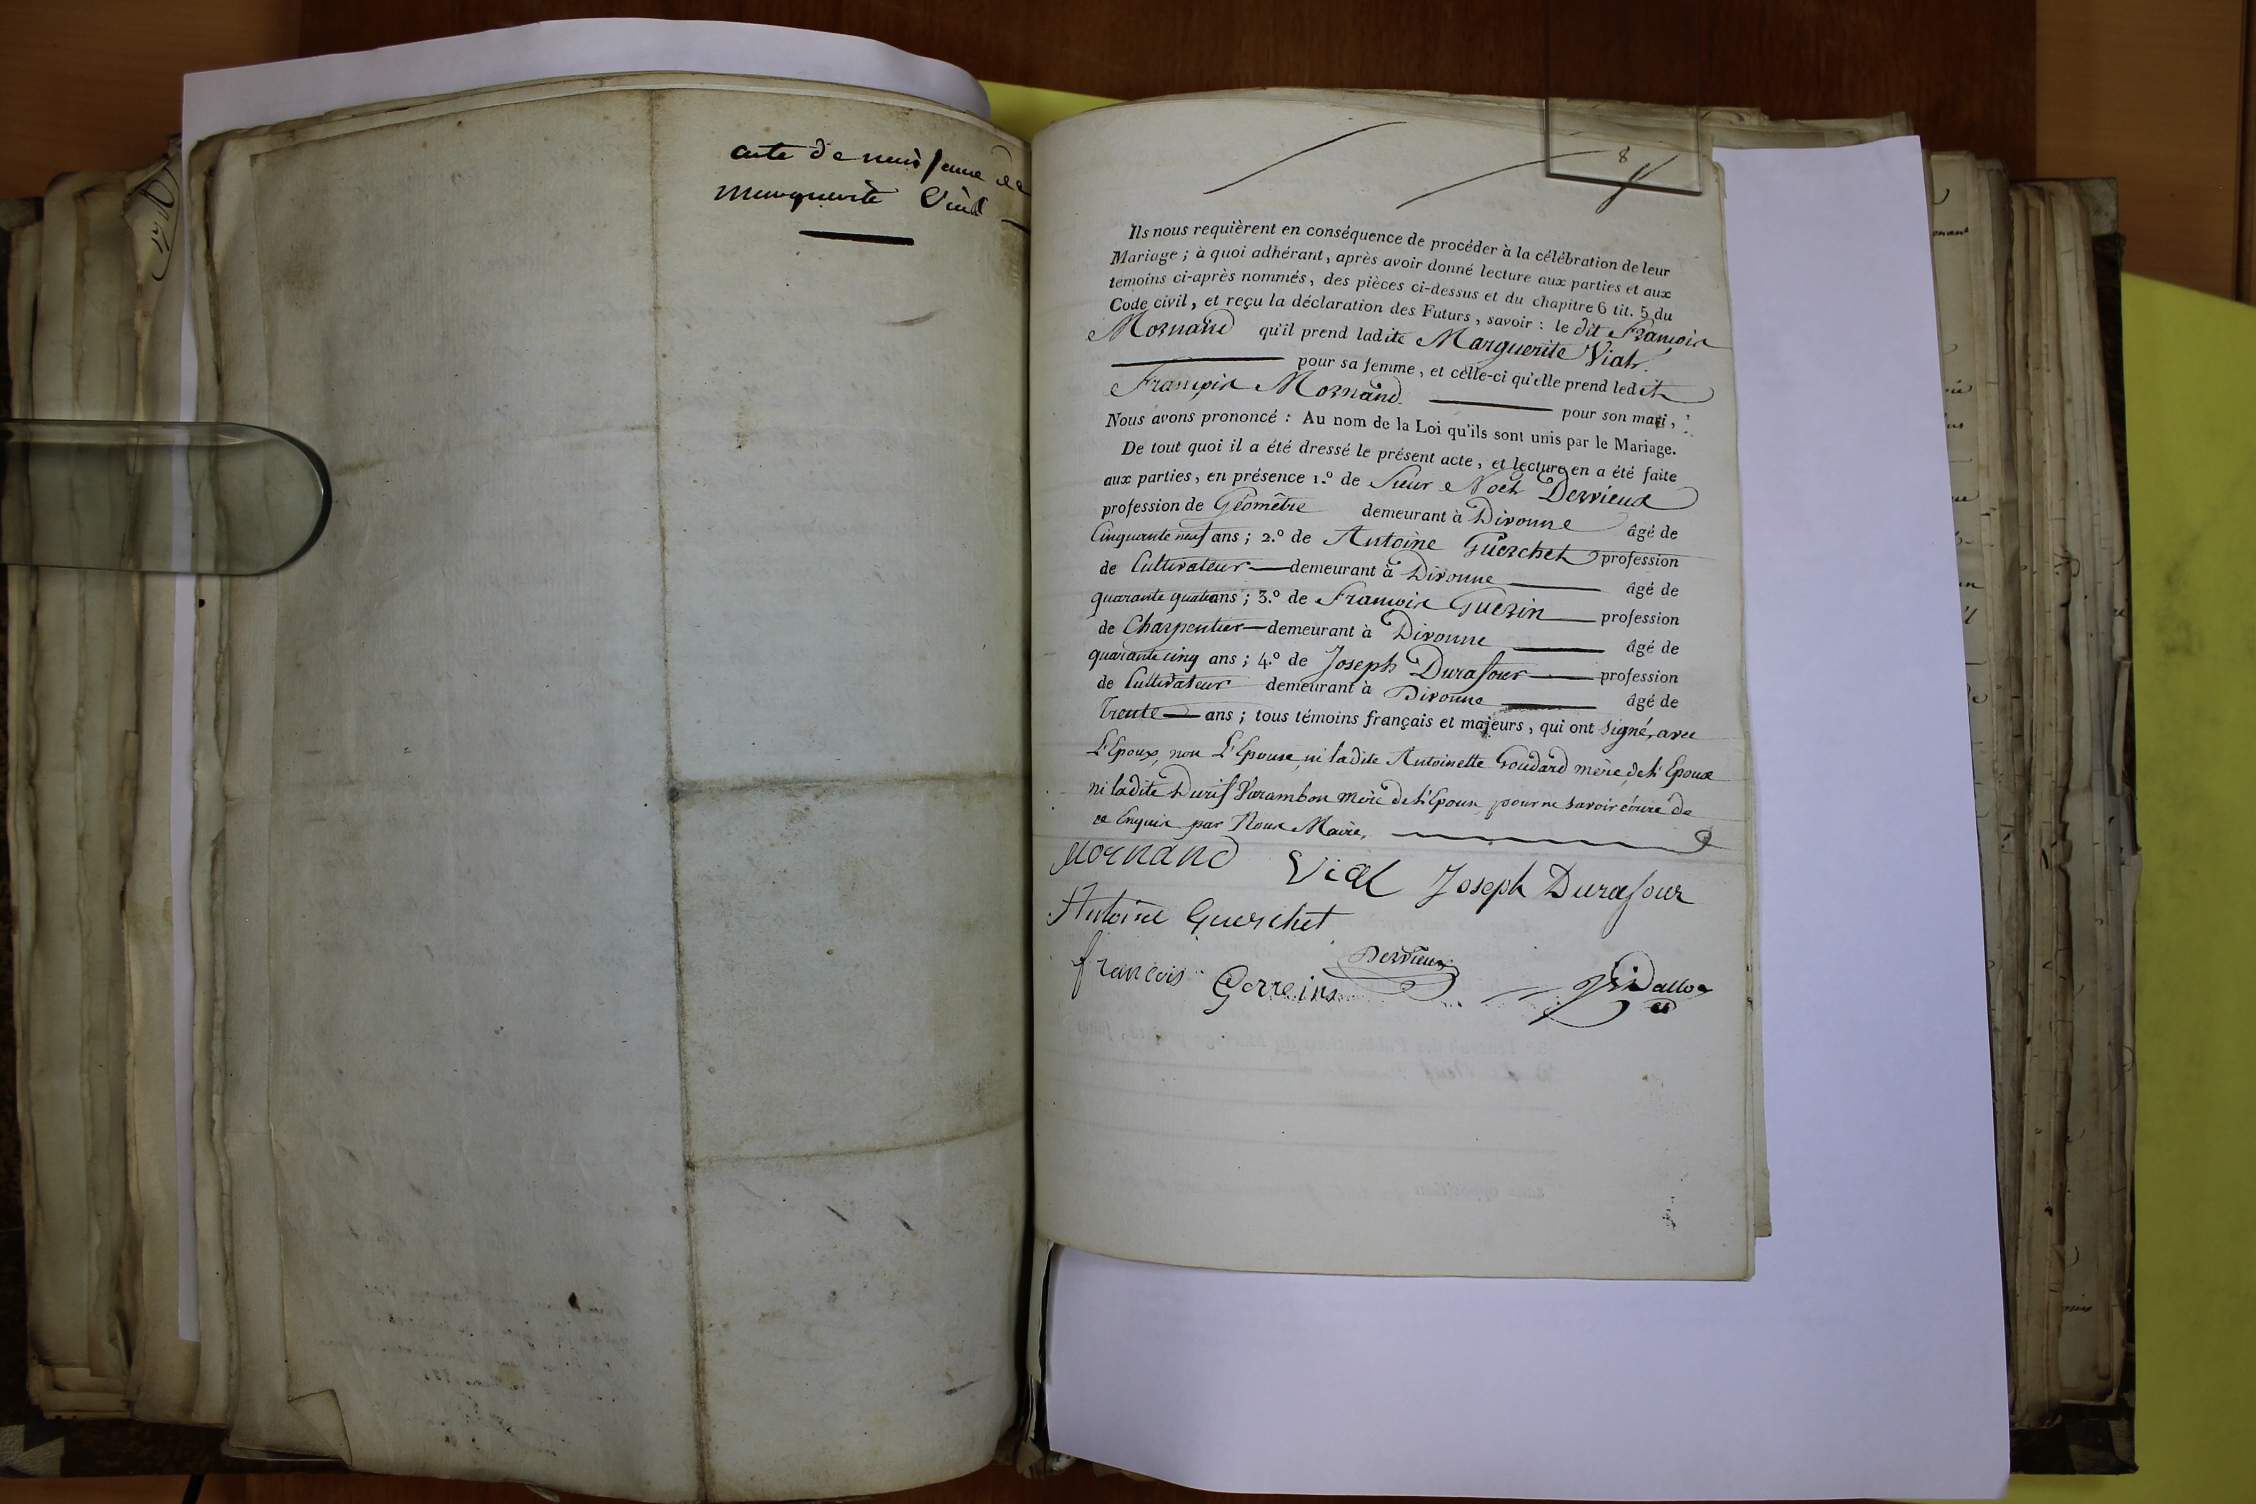 acte de naissance de
marguerite Vial
8
Ils nous requièrent en conséquence de procéder à la célébration de leur
Mariage ; à quoi adhérant, après avoir donné lecture aux parties et aux
témoins ci-après nommés, des pièces ci-dessus et du chapitre 6 tit. 5 du
Code civil, et reçu la déclaration des Futurs, savoir : le dit François
Mornand qu'il prend ladite Marguerite Vial
pour sa femme, et celle-ci qu'elle prend ledit
François Mornand pour son mari,
Nous avons prononcé : Au nom de la Loi qu'ils sont unis par le Mariage.
De tout quoi il a été dressé le présent acte, et lecture en a été faite
aux parties, en présence 1.º de Sieur Noël Derrieux
profession de Géomètre demeurant à Divonne âgé de
Cinquante neuf ans ; 2.º de Antoine Guerchet profession
de Cultivateur demeurant à Divonne âgé de
quarante quatre ans ; 3.º de François Guerin profession
de Charpentier demeurant à Divonne âgé de
quarante cinq ans ; 4.º de Joseph Durafour profession
de Cultivateur demeurant à Divonne âgé de
Trente ans ; tous témoins français et majeurs, qui ont signé, avec
L'Epoux, non L'Epouse, ni ladite Antoinette Goudard mère de l'Epoux
ni ladite Varambon mère de l'Epouse, pour ne savoir écrire de
ce Enquis par Nous Maire.
Mornand Vial Joseph Durafour
Antoine Guerchet
françois Gerreins Derrieux